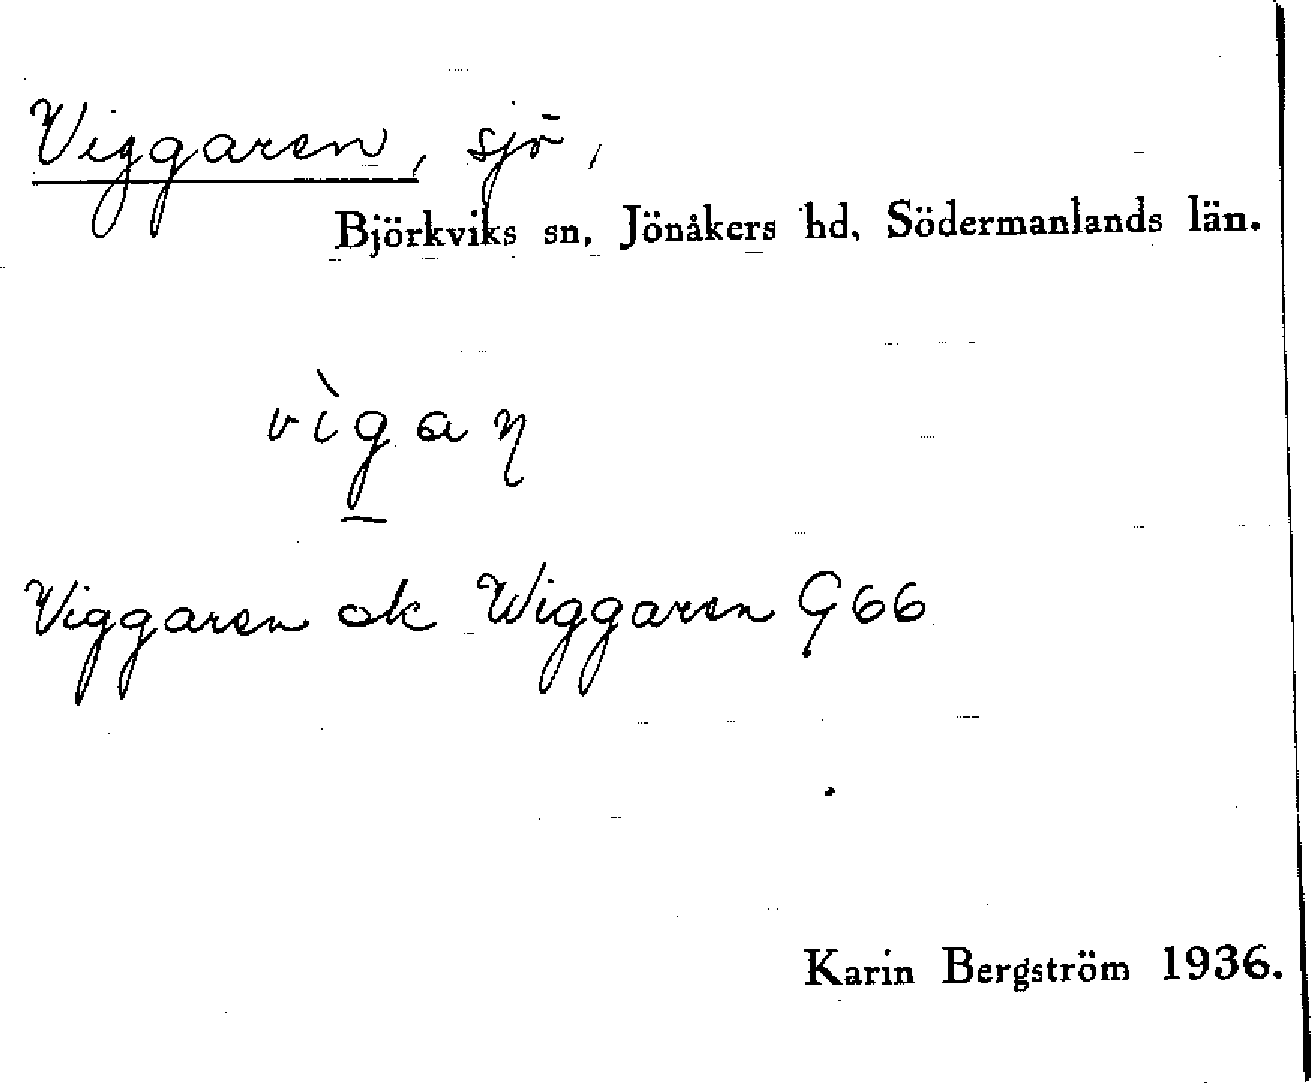 Viggaren, sjö,
Björkviks sn, Jönåkers hd, Södermanlands län.
vìgaŋ
Viggaren ok Wiggaren G66
Karin Bergström 1936.